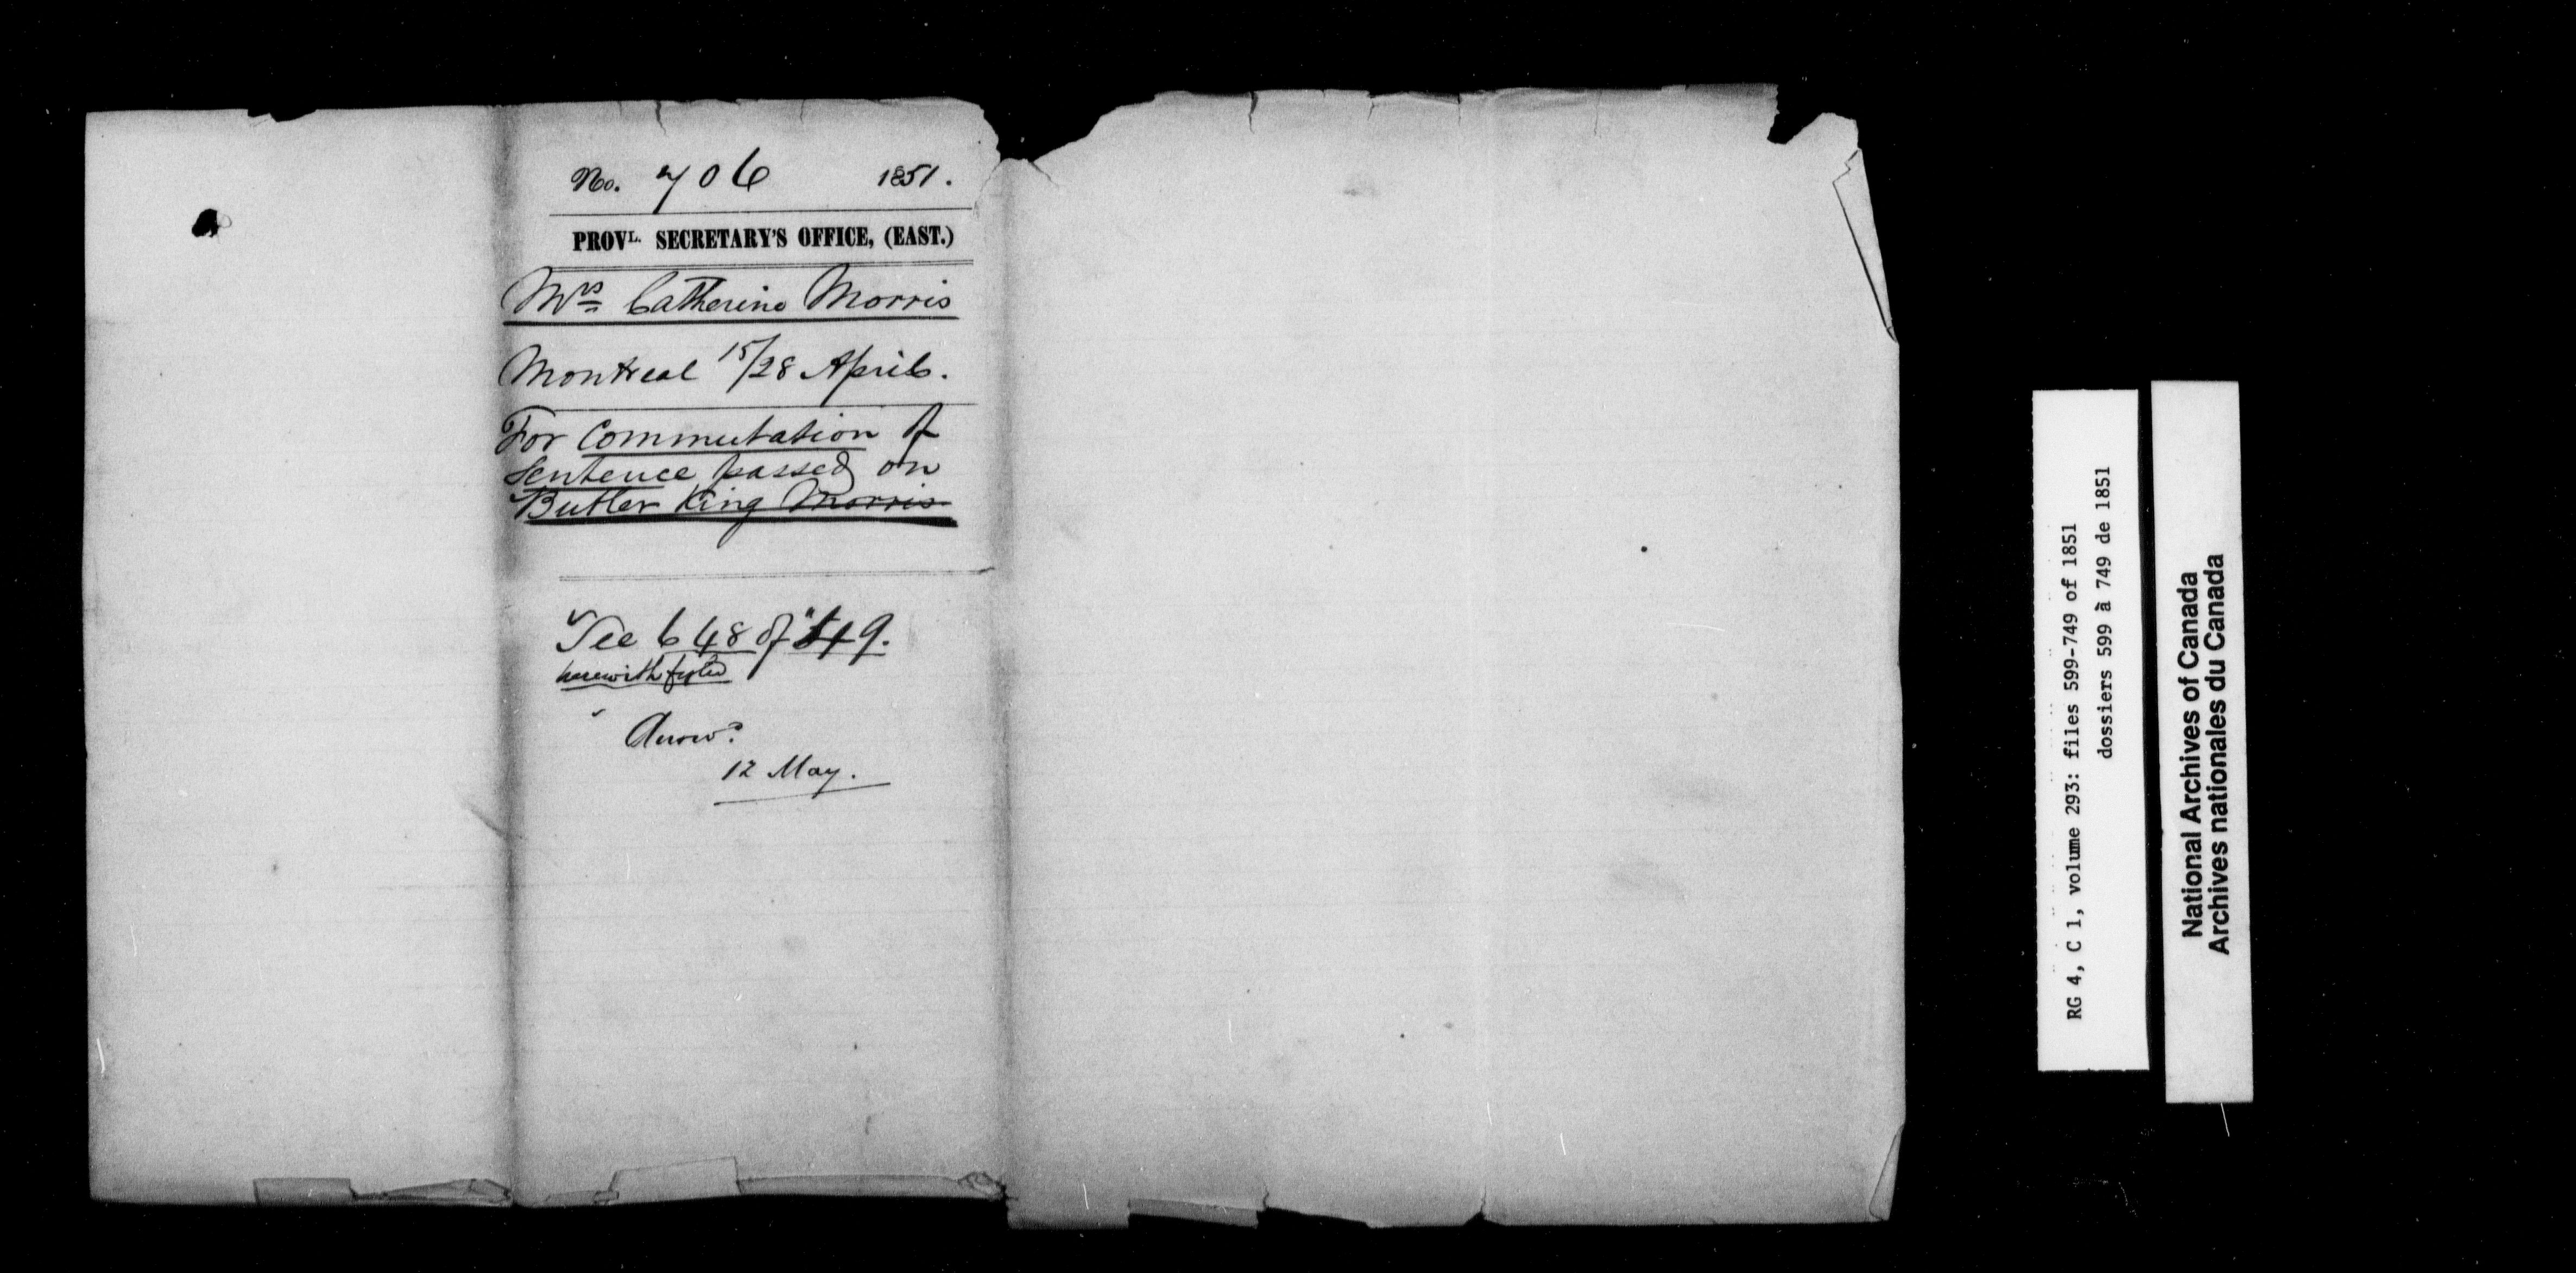 No. 706 1851.
PROVL. SECRETARY'S OFFICE, (EAST.)
Mrs Catherine Morris
Montreal 15/28 April.
For Commutation of
Sentence passed on
Butler King Morris
See 648 of '49.
herewith fyled
Answd.
12 May.
RG 4, C 1, volume 293: files 599-749 of 1851
dossiers 599 à 749 de 1851
National Archives of Canada
Archives nationales du Canada